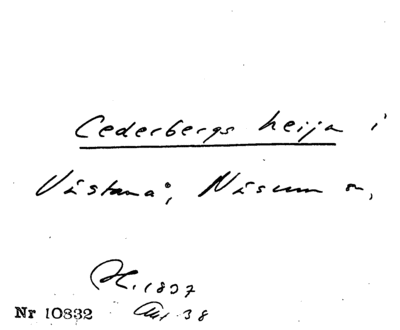 Cederbergs heija i
Västanå, Näsum sn,
H. 1897
Nr 10832
38